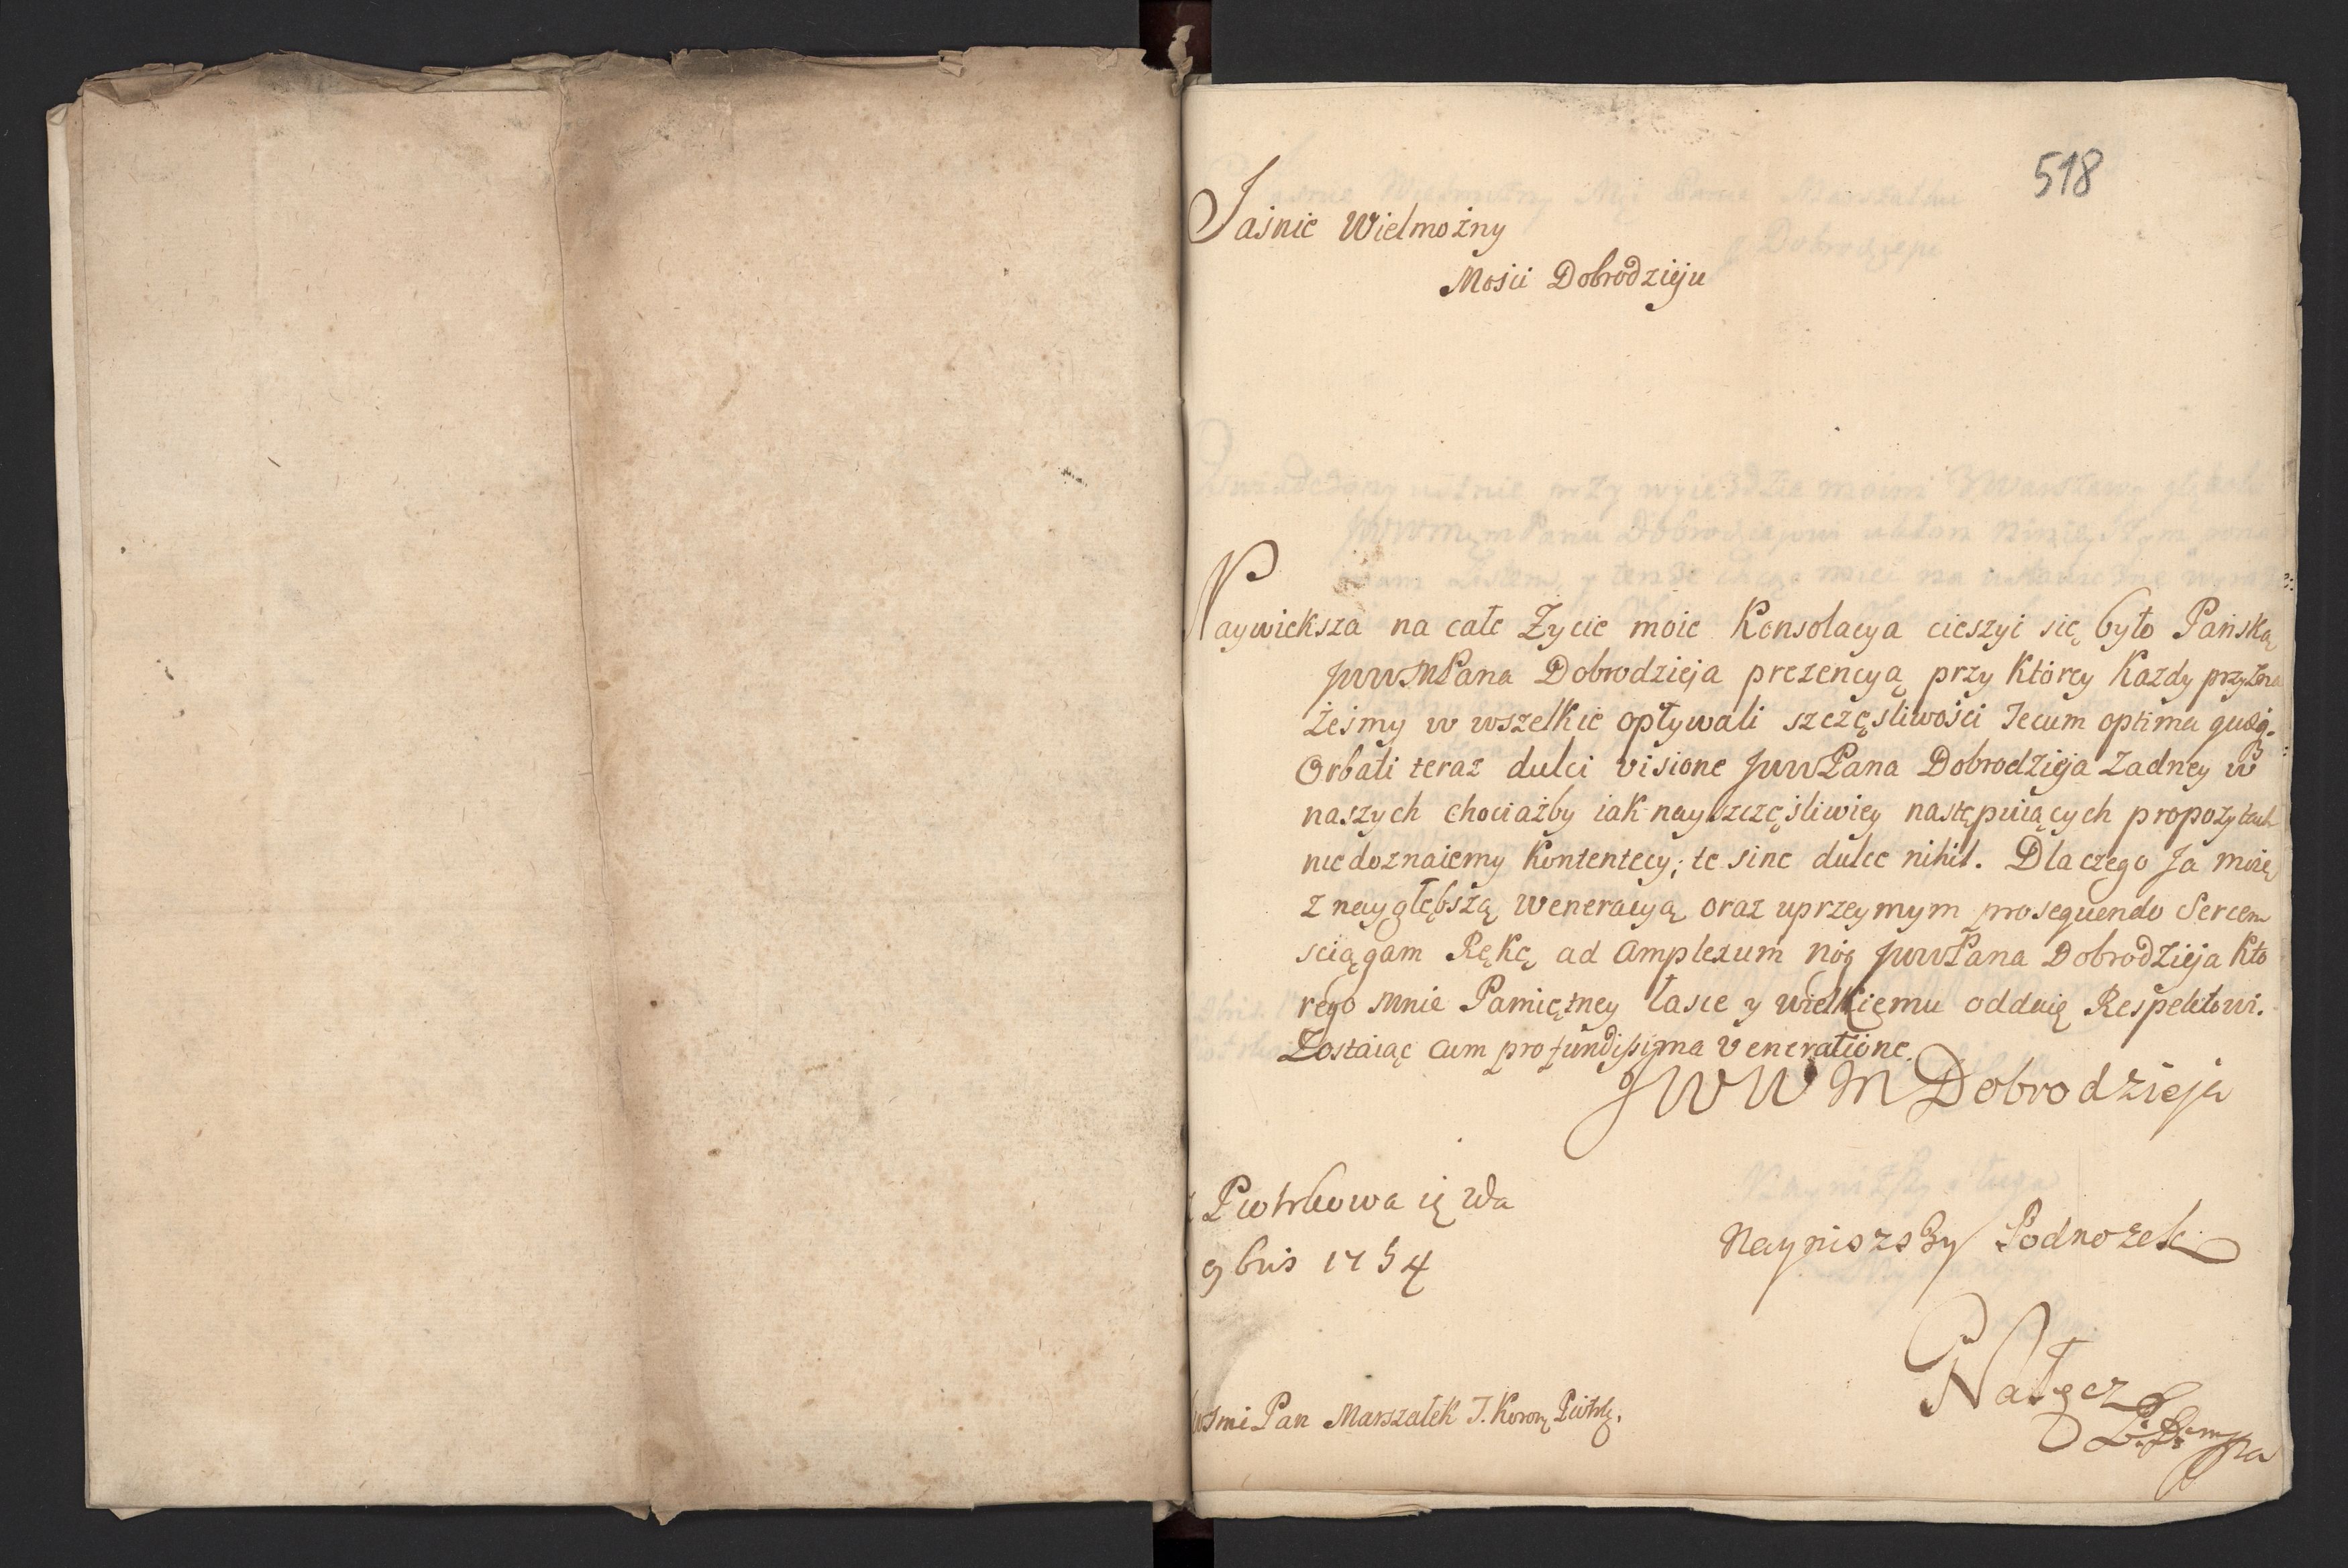 518
Jaśnie Wielmożny
Mości Dobrodzieju
Naywieksza na całe Zycie moie Konsolacya cieszyć się było Pańską
JWWMPana Dobrodzieja prezencyą przy Ktorey Kazdy przyzna
żeśmy w wszelkie opływali szczęsliwości Tecum optima quæq.
Orbati teraz dulci visione JWWPana Dobrodzieja Zadney w
naszych chociażby iak nayszczęśliwiey nastepuiących propozytach
niedoznaiemy Kontentecy; te sine dulce nihil. Dlaczego Ja moię
z naygłębszą weneracyą oraz uprzeymym prosequendo Sercem
sciągam Rękę ad amplexum nóg JWWPana Dobrodzieja Kto
rego mnie Pamiętney łasce y wielkiemu oddaię Respektowi.
Zostaiąc cum profundissima veneratione
JWWM Dobrodzieja
Piotrkowa
9bris 1754
Nayniszszy Podnożek
Nałęcz
Pan Marszałek T. Korony Piotrk.